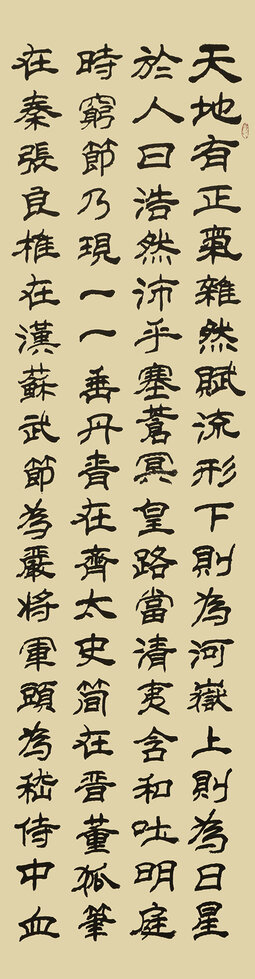 天地有正氣雜然賦流形下則為河嶽上則為日星
於人曰浩然沛乎塞蒼冥皇路當清夷含和吐明庭
時窮節乃現一一垂丹青在齊太史简在晋董狐筆
在秦張良椎在漢蘇武節為嚴将軍頭為嵇侍中血